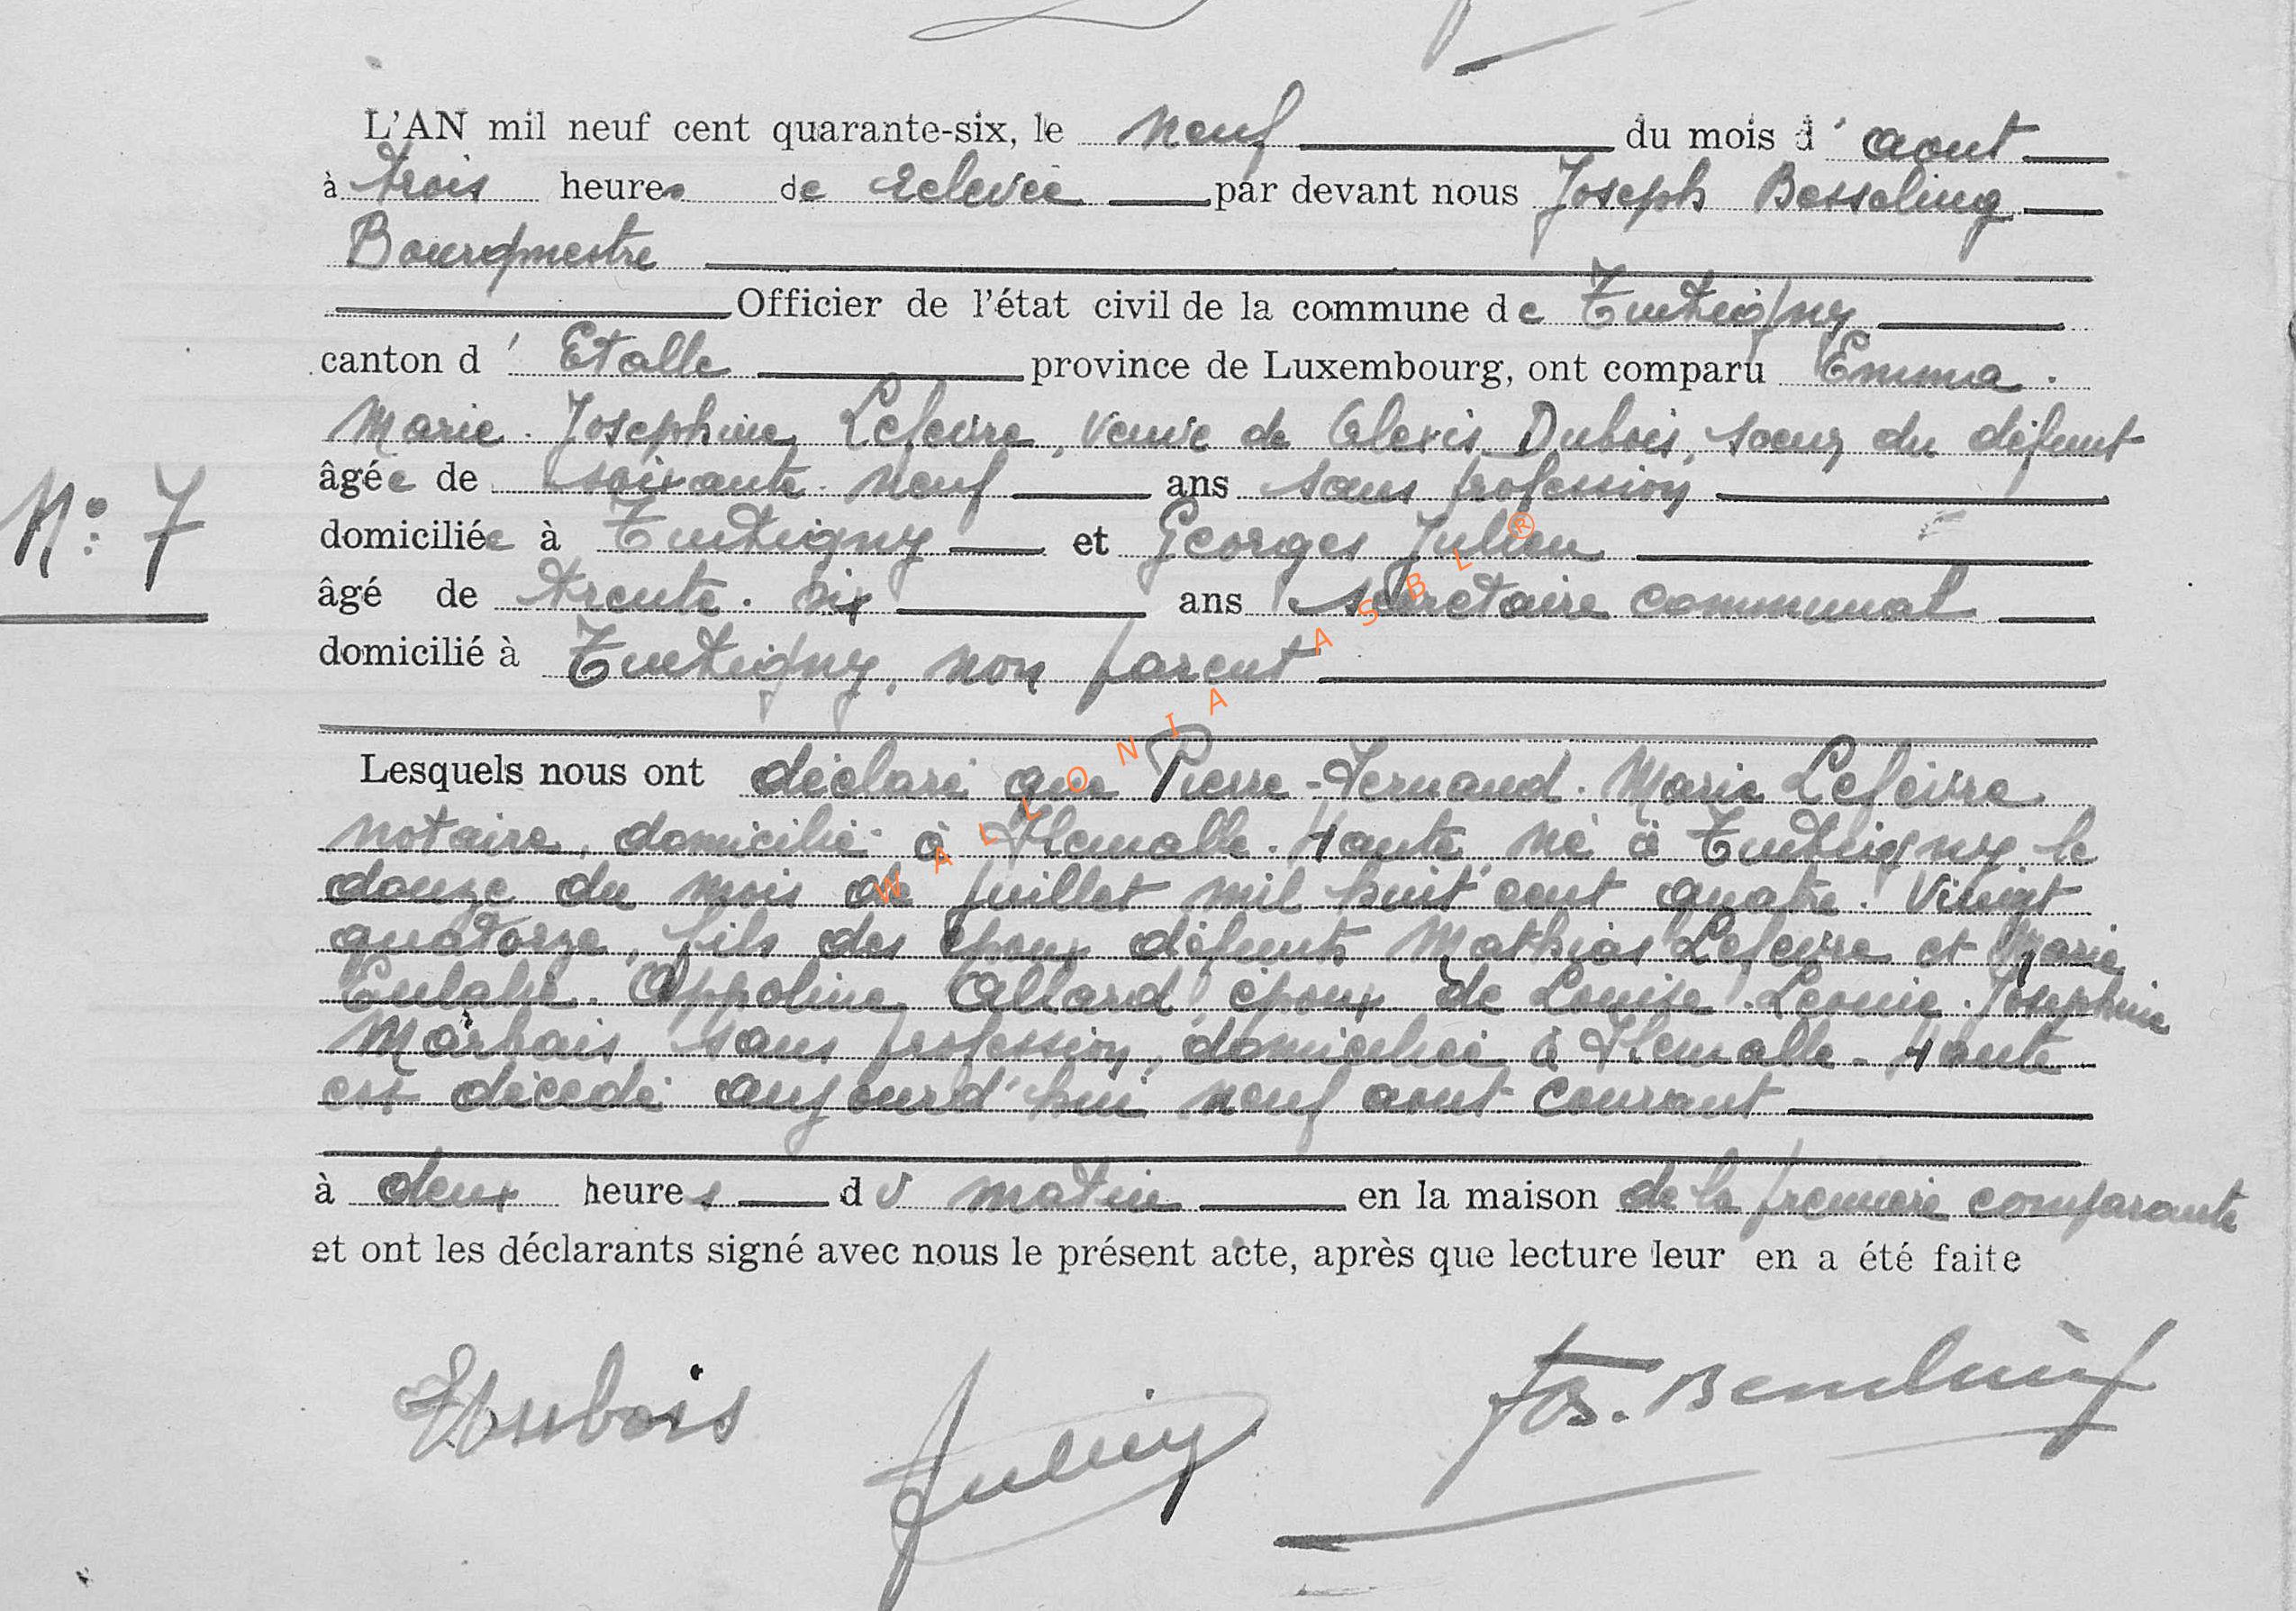 L'AN mil neuf cent quarante-six, le neuf du mois d' aout
à trois heures de relevée par devant nous Joseph Besseling
Bourgmestre
Officier de l'état civil de la commune de Tintigny
canton d' Etalle province de Luxembourg, ont comparu Emma
Marie Josephine Lefèvre, veuve de Alexis Dubois, soeur du défunt
âgée de soixante neuf ans sans profession
N° 7
domiciliée à Tintigny et Georges Julien
âgé de trente six ans secrétaire communal
domicilié à Tintigny, non parent
Lesquels nous ont déclaré que Pierre-Fernand. Marie Lefèvre
notaire, domicilié à Flemalle-Haute, né à Tintigny le
douze du mois de juillet mil huit cent quatre. Vingt
quatorze, fils des époux défunts Mathias Lefèvre et Marie
Eulalie. Appoline Allard, époux de Louise. Léonie. Josephine
Marbais, sans profession, domiciliée à Flemalle-Haute
est décédé aujourd'hui neuf aout courant
à deux heures du matin en la maison de la première comparante
et ont les déclarants signé avec nous le présent acte, après que lecture leur en a été faite
Dubois
Julien
WALLONIA ASBL ®